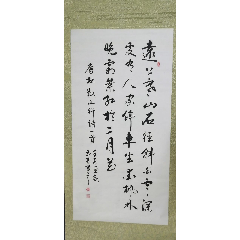 遠上寒山石徑斜白雲深
處有人家停車坐愛楓林
晚霜葉紅於二月花
唐杜牧山行詩一首